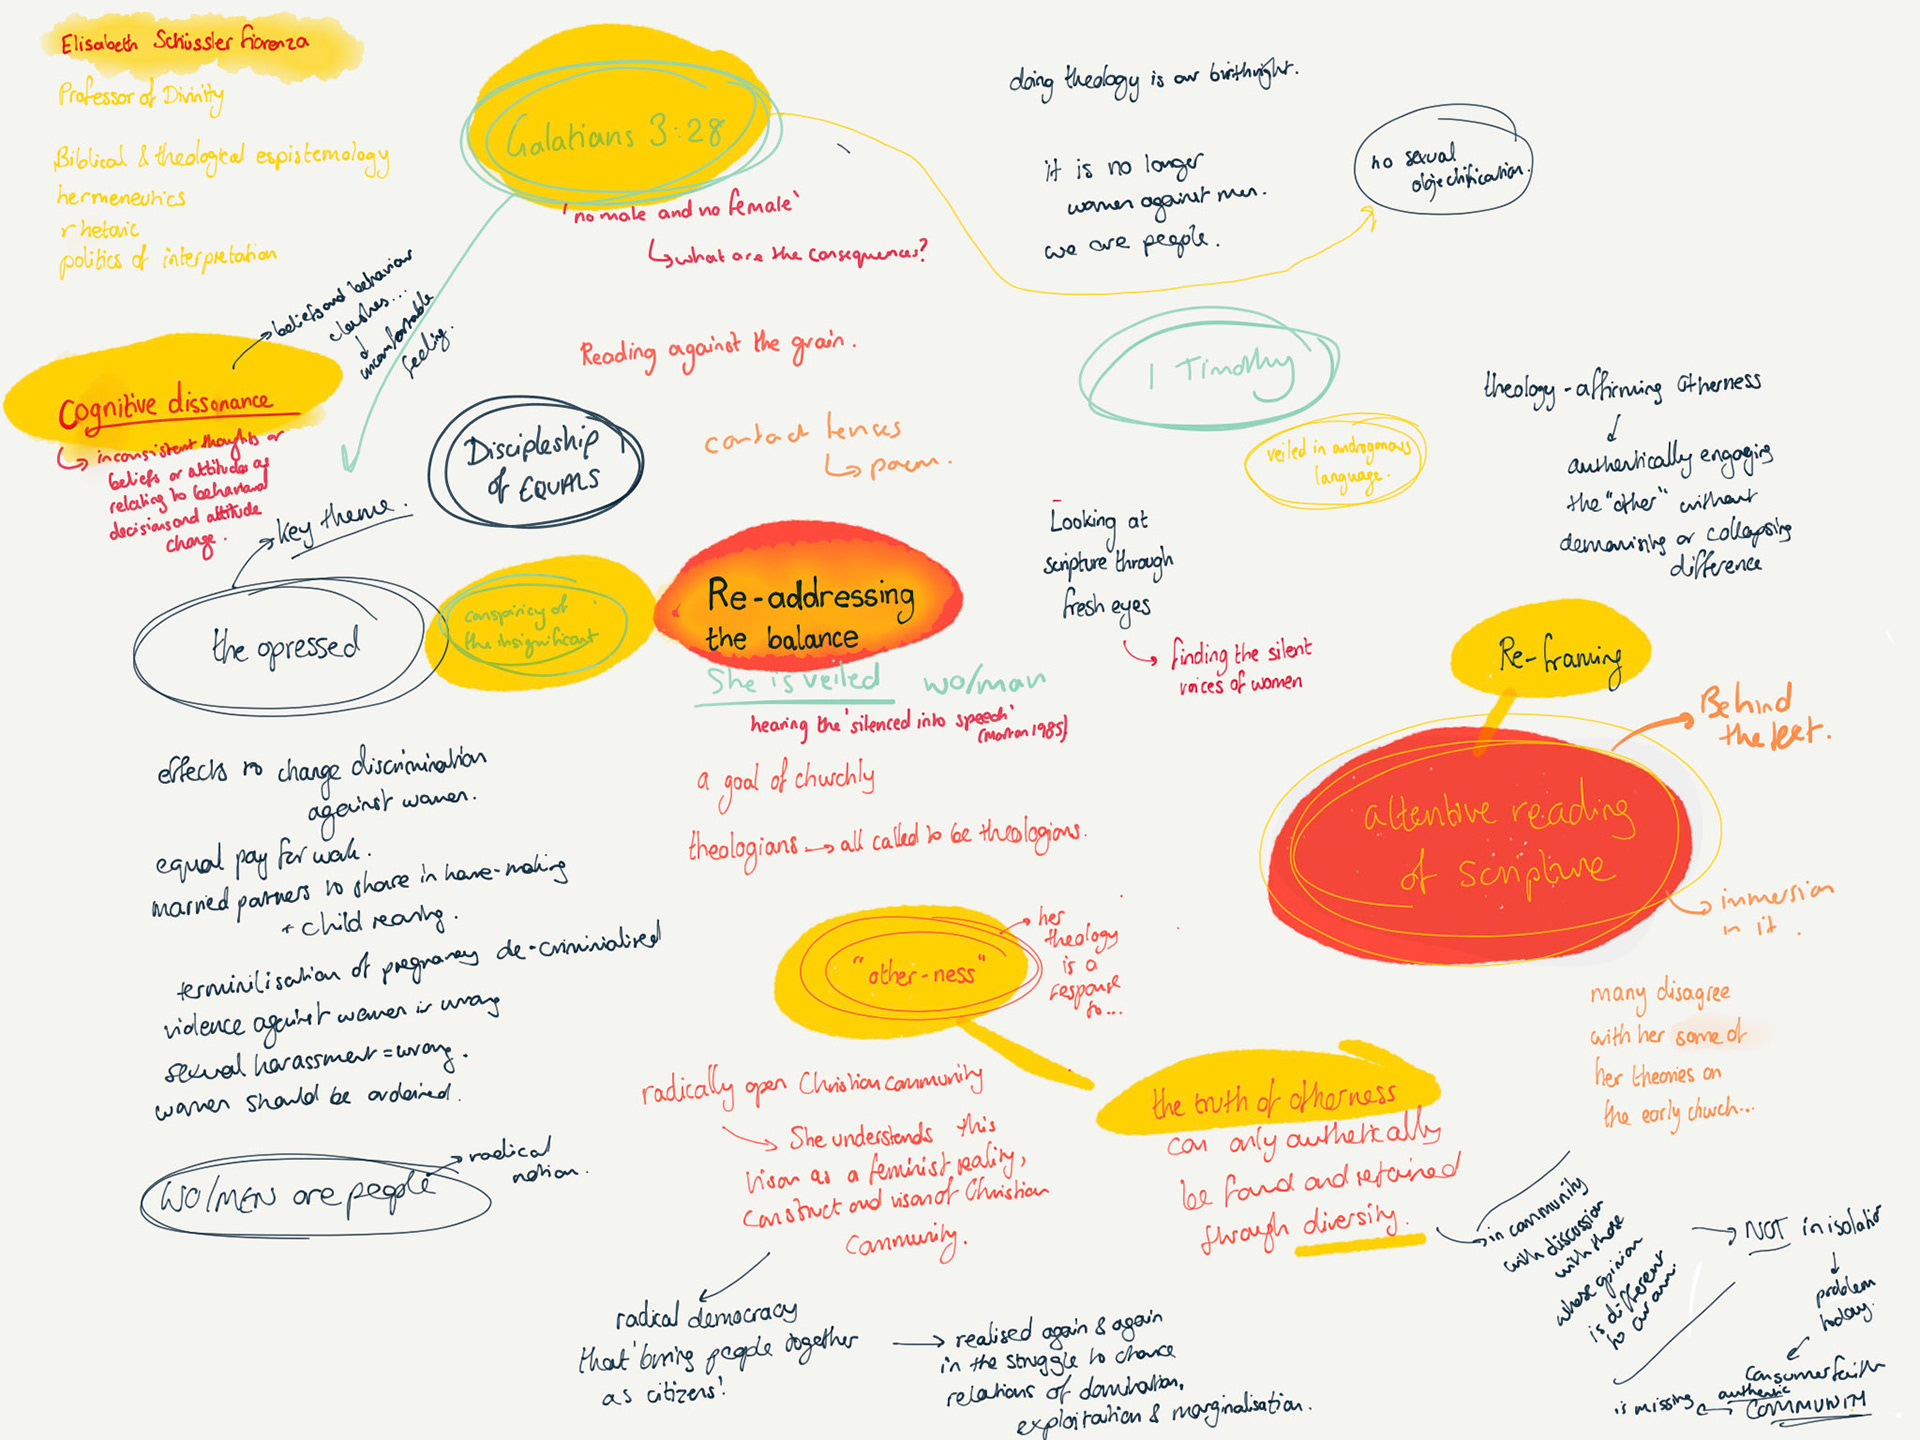 Elisabeth Schüssler fiorenza
Professor of Divinity
Biblical & theological espistemology
hermeneutics
rhetoric
politics of interpretation
Galatians 3:28
'no male and no female'
what are the consequences?
doing theology is our birthright.
it is no longer
women against men.
we are people.
no sexual
objectification.
beliefs and behaviour
clashes...
uncomfortable
feeling.
Cognitive dissonance
inconsistent thoughts or
beliefs or attitudes as
relating to behavioural
decisions and attitude
change.
Reading against the grain.
contact lenses
poem.
1 Timothy
veiled in androgenous
language.
theology - affirming otherness
authentically engaging
the "other" without
demonising or collapsing
difference
Discipleship
of EQUALS
key theme.
the opressed
conspiricy of
the insignificant
Re-addressing
the balance
She is veiled wo/man
hearing the 'silenced into speech'
(Morton 1985)
a goal of churchly
theologians → all called to be theologians.
Looking at
scripture through
fresh eyes
finding the silent
voices of women
Re-framing
Behind
the text.
attentive reading
of scripture
immersion
in it.
many disagree
with her some of
her theories on
the early church...
effects to change discrimination
against women.
equal pay for work.
married partners to share in home-making
+ child rearing.
terminilisation of pregnancy de-criminialised
violence against women is wrong
sexual harassment = wrong.
women should be ordained.
WO/MEN are people
radical
notion.
"other-ness"
her
theology
is a
response
to...
radically open Christian community
She understands this
vison as a feminist reality,
construct and vison of Christian
Community.
radical democracy
that 'bring people together
as citizens'
realised again & again
in the struggle to change
relations of domination,
exploitation & marginalisation.
the truth of otherness
can only authetically
be found and retained
through diversity.
in community
with discussion
with those
whose opinion
is different
to our own.
NOT in isolation
problem
today.
consumer faith
authentic
COMMUNITY
is missing